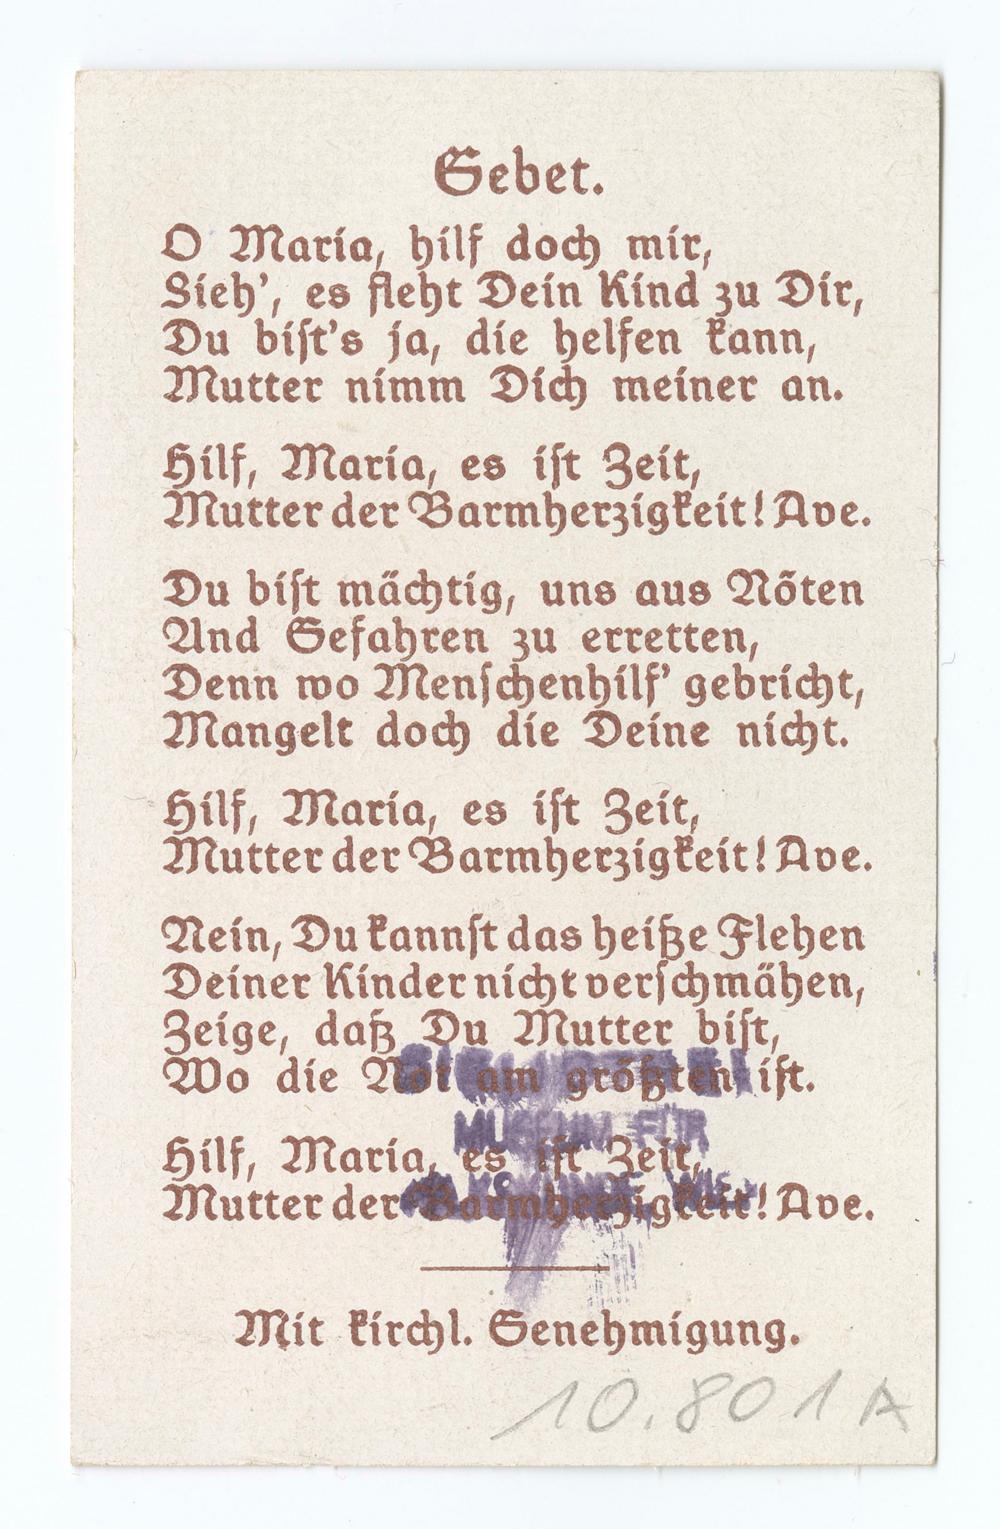 Gebet.
O Maria, hilf doch mir,
Sieh', es fleht Dein Kind zu Dir,
Du bist's ja, die helfen kann,
Mutter nimm Dich meiner an.
Hilf, Maria, es ist Zeit,
Mutter der Barmherzigkeit! Ave.
Du bist mächtig, uns aus Nöten
Und Gefahren zu erretten,
Denn wo Menschenhilf' gebricht,
Mangelt doch die Deine nicht.
Hilf, Maria, es ist Zeit,
Mutter der Barmherzigkeit! Ave.
Nein, Du kannst das heiße Flehen
Deiner Kinder nicht verschmähen,
Zeige, daß Du Mutter bist,
Wo die Not am größten ist.
MUSEUM FÜR
Hilf, Maria, es ist Zeit,
Mutter der Barmherzigkeit! Ave.
Mit kirchl. Genehmigung.
10.801 A